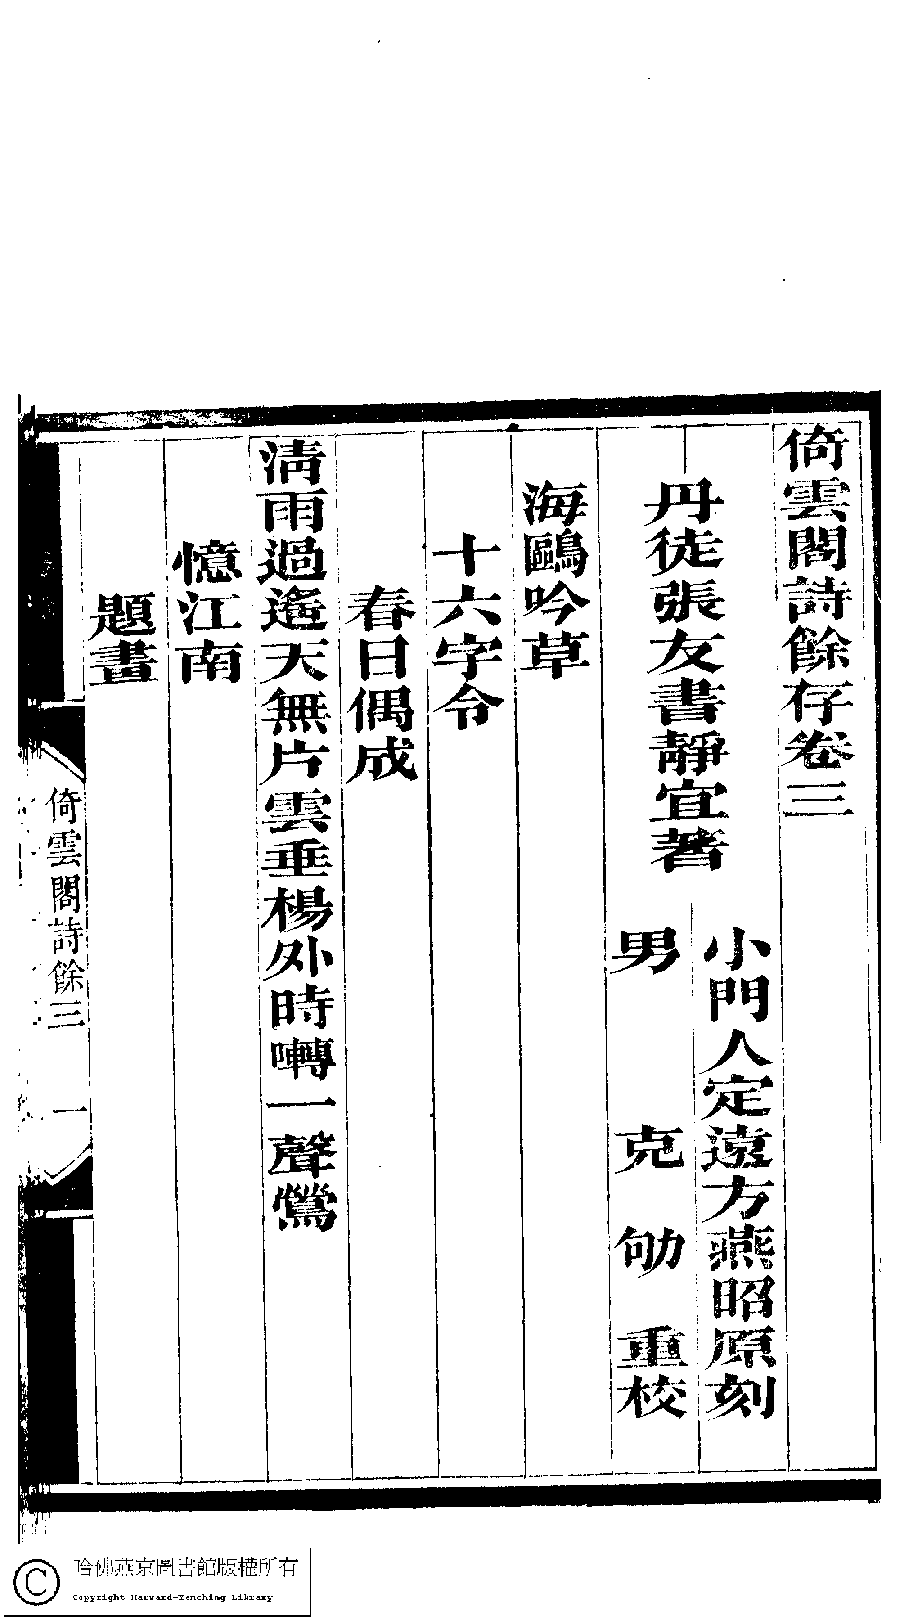 倚雲閣詩餘存卷三
丹徒張友書靜宜著
小門人定遠方燕昭原刻
男 克劬 重校
海鷗吟草
十六字令
春日偶成
淸雨過遙天無片雲垂楊外時囀一聲鶯
憶江南
題畫
倚雲閣詩餘三
一
哈佛燕京圖書館版權所有
Copyright Harvard-Yenching Library